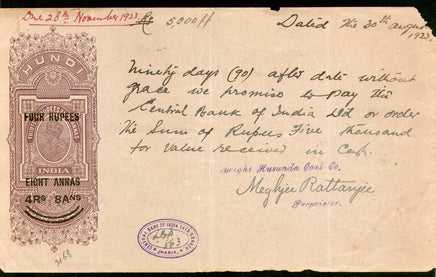 Due 28th November 1923
Rs 5,000/-
Dated the 30th August
1923.
HUNDI
FOUR RUPEES
INDIA
EIGHT ANNAS
4RS 8ANS
Ninety days (90) after date without
grace we promise to pay the
Central Bank of India Ltd or order
the Sum of Rupees Five thousand
for value received in Cash.
Kusunda Coal Co.
Meghjee Rattanjee
Proprietor.
CENTRAL BANK OF INDIA
JHARIA